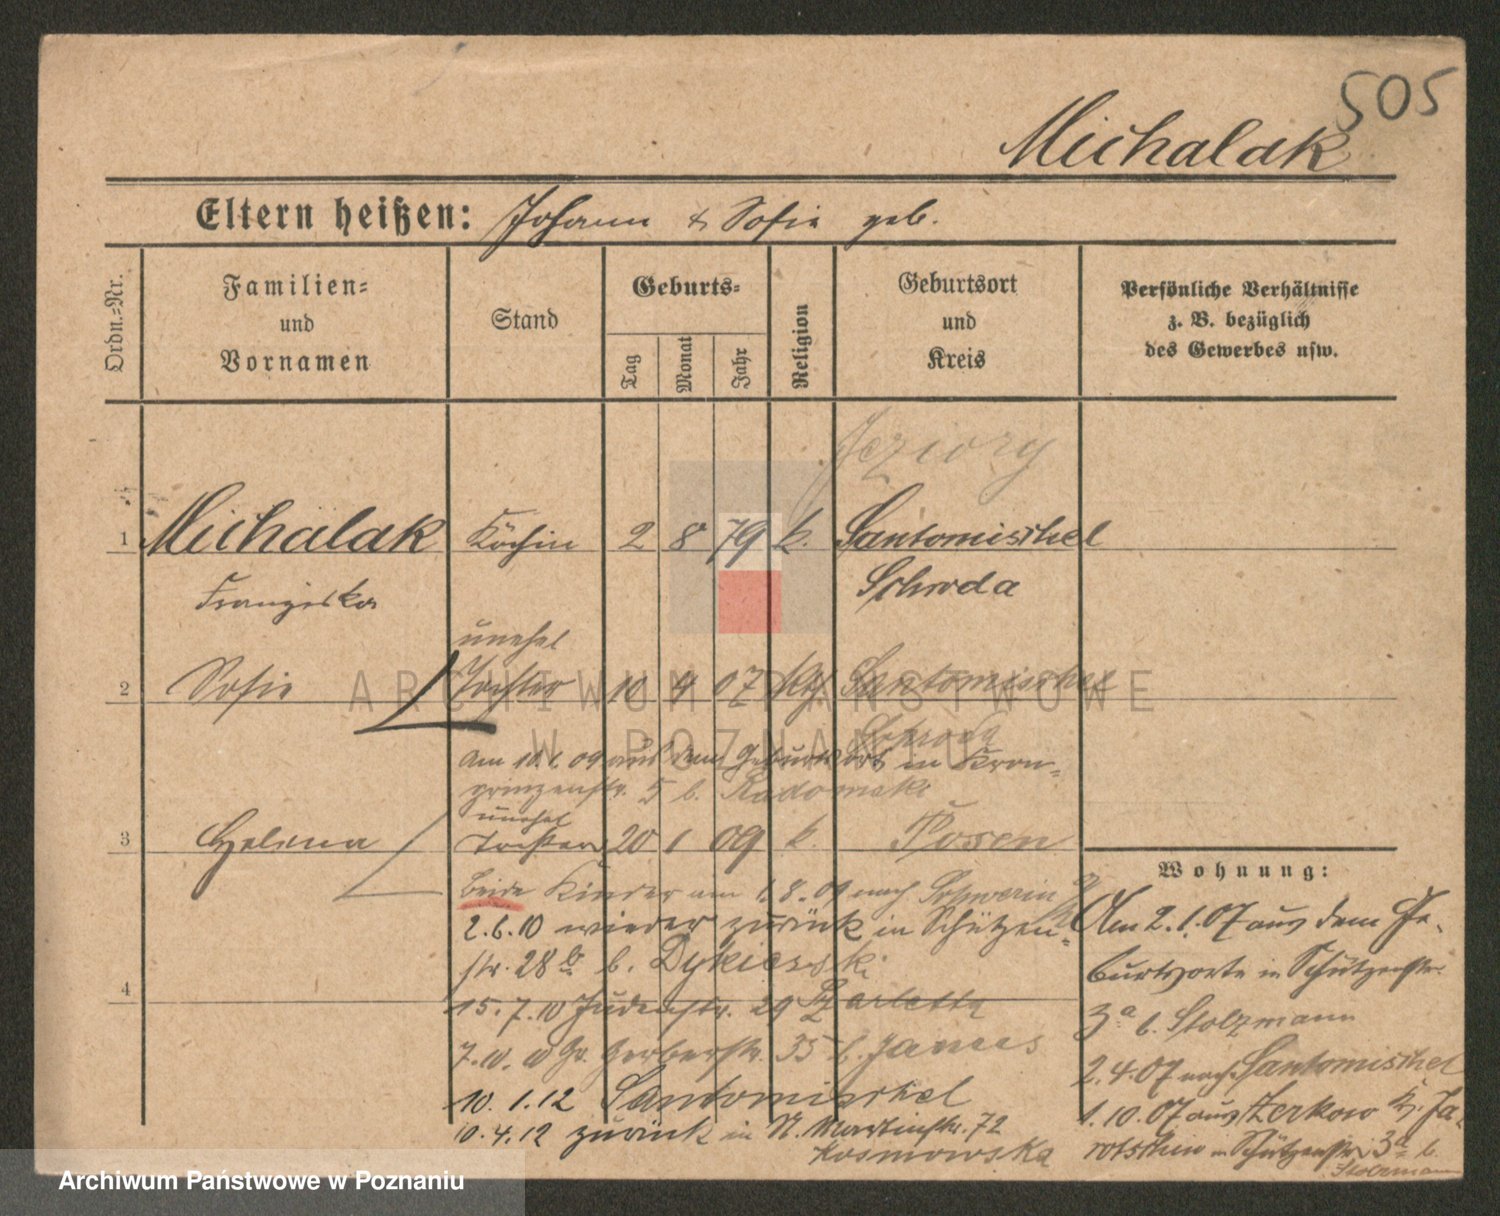 505
Michalak
Eltern heißen: Johann & Sofie geb.
Ordn.-Nr.
Familien-
und
Vornamen
Stand
Geburts-
Tag
Monat
Jahr
Religion
Geburtsort
und
Kreis
Persönliche Verhältnisse
z. B. bezüglich
des Gewerbes usw.
Jeziory
1 Michalak Köchin 2 8 79 k. Santomischel
Franziska Schroda
unehel
2 Sofie Tochter 10 4 07 kth. Santomischel
Schroda
Am 10.1.09 aus dem Geburtsort in Kron-
prinzenstr. 5 b. Radomski
unehel
3 Helena Tochter 20 1 09 k. Posen
Beide Kinder am 1.8.09 nach Schwerin
2.6.10 wieder zurück in Schützen-
str. 28 b. Dykierski
4
15.7.10 Judenstr. 29 Szarletta
7.10.10 Gr. Gerberstr. 35 b. James
10.1.12 Santomischel
10.4.12 zurück in St. Martinstr. 72
Kosmowska
Wohnung:
Am 2.1.07 aus dem Ge-
burtsorte in Schützenstr.
3a b. Stolzmann
2.4.07 nach Santomischel
1.10.07 aus Zerkow Kr. Ja-
rotschin in Schützenstr. 3a b.
Stolzmann
ARCHIWUM PAŃSTWOWE
W POZNANIU
Archiwum Państwowe w Poznaniu